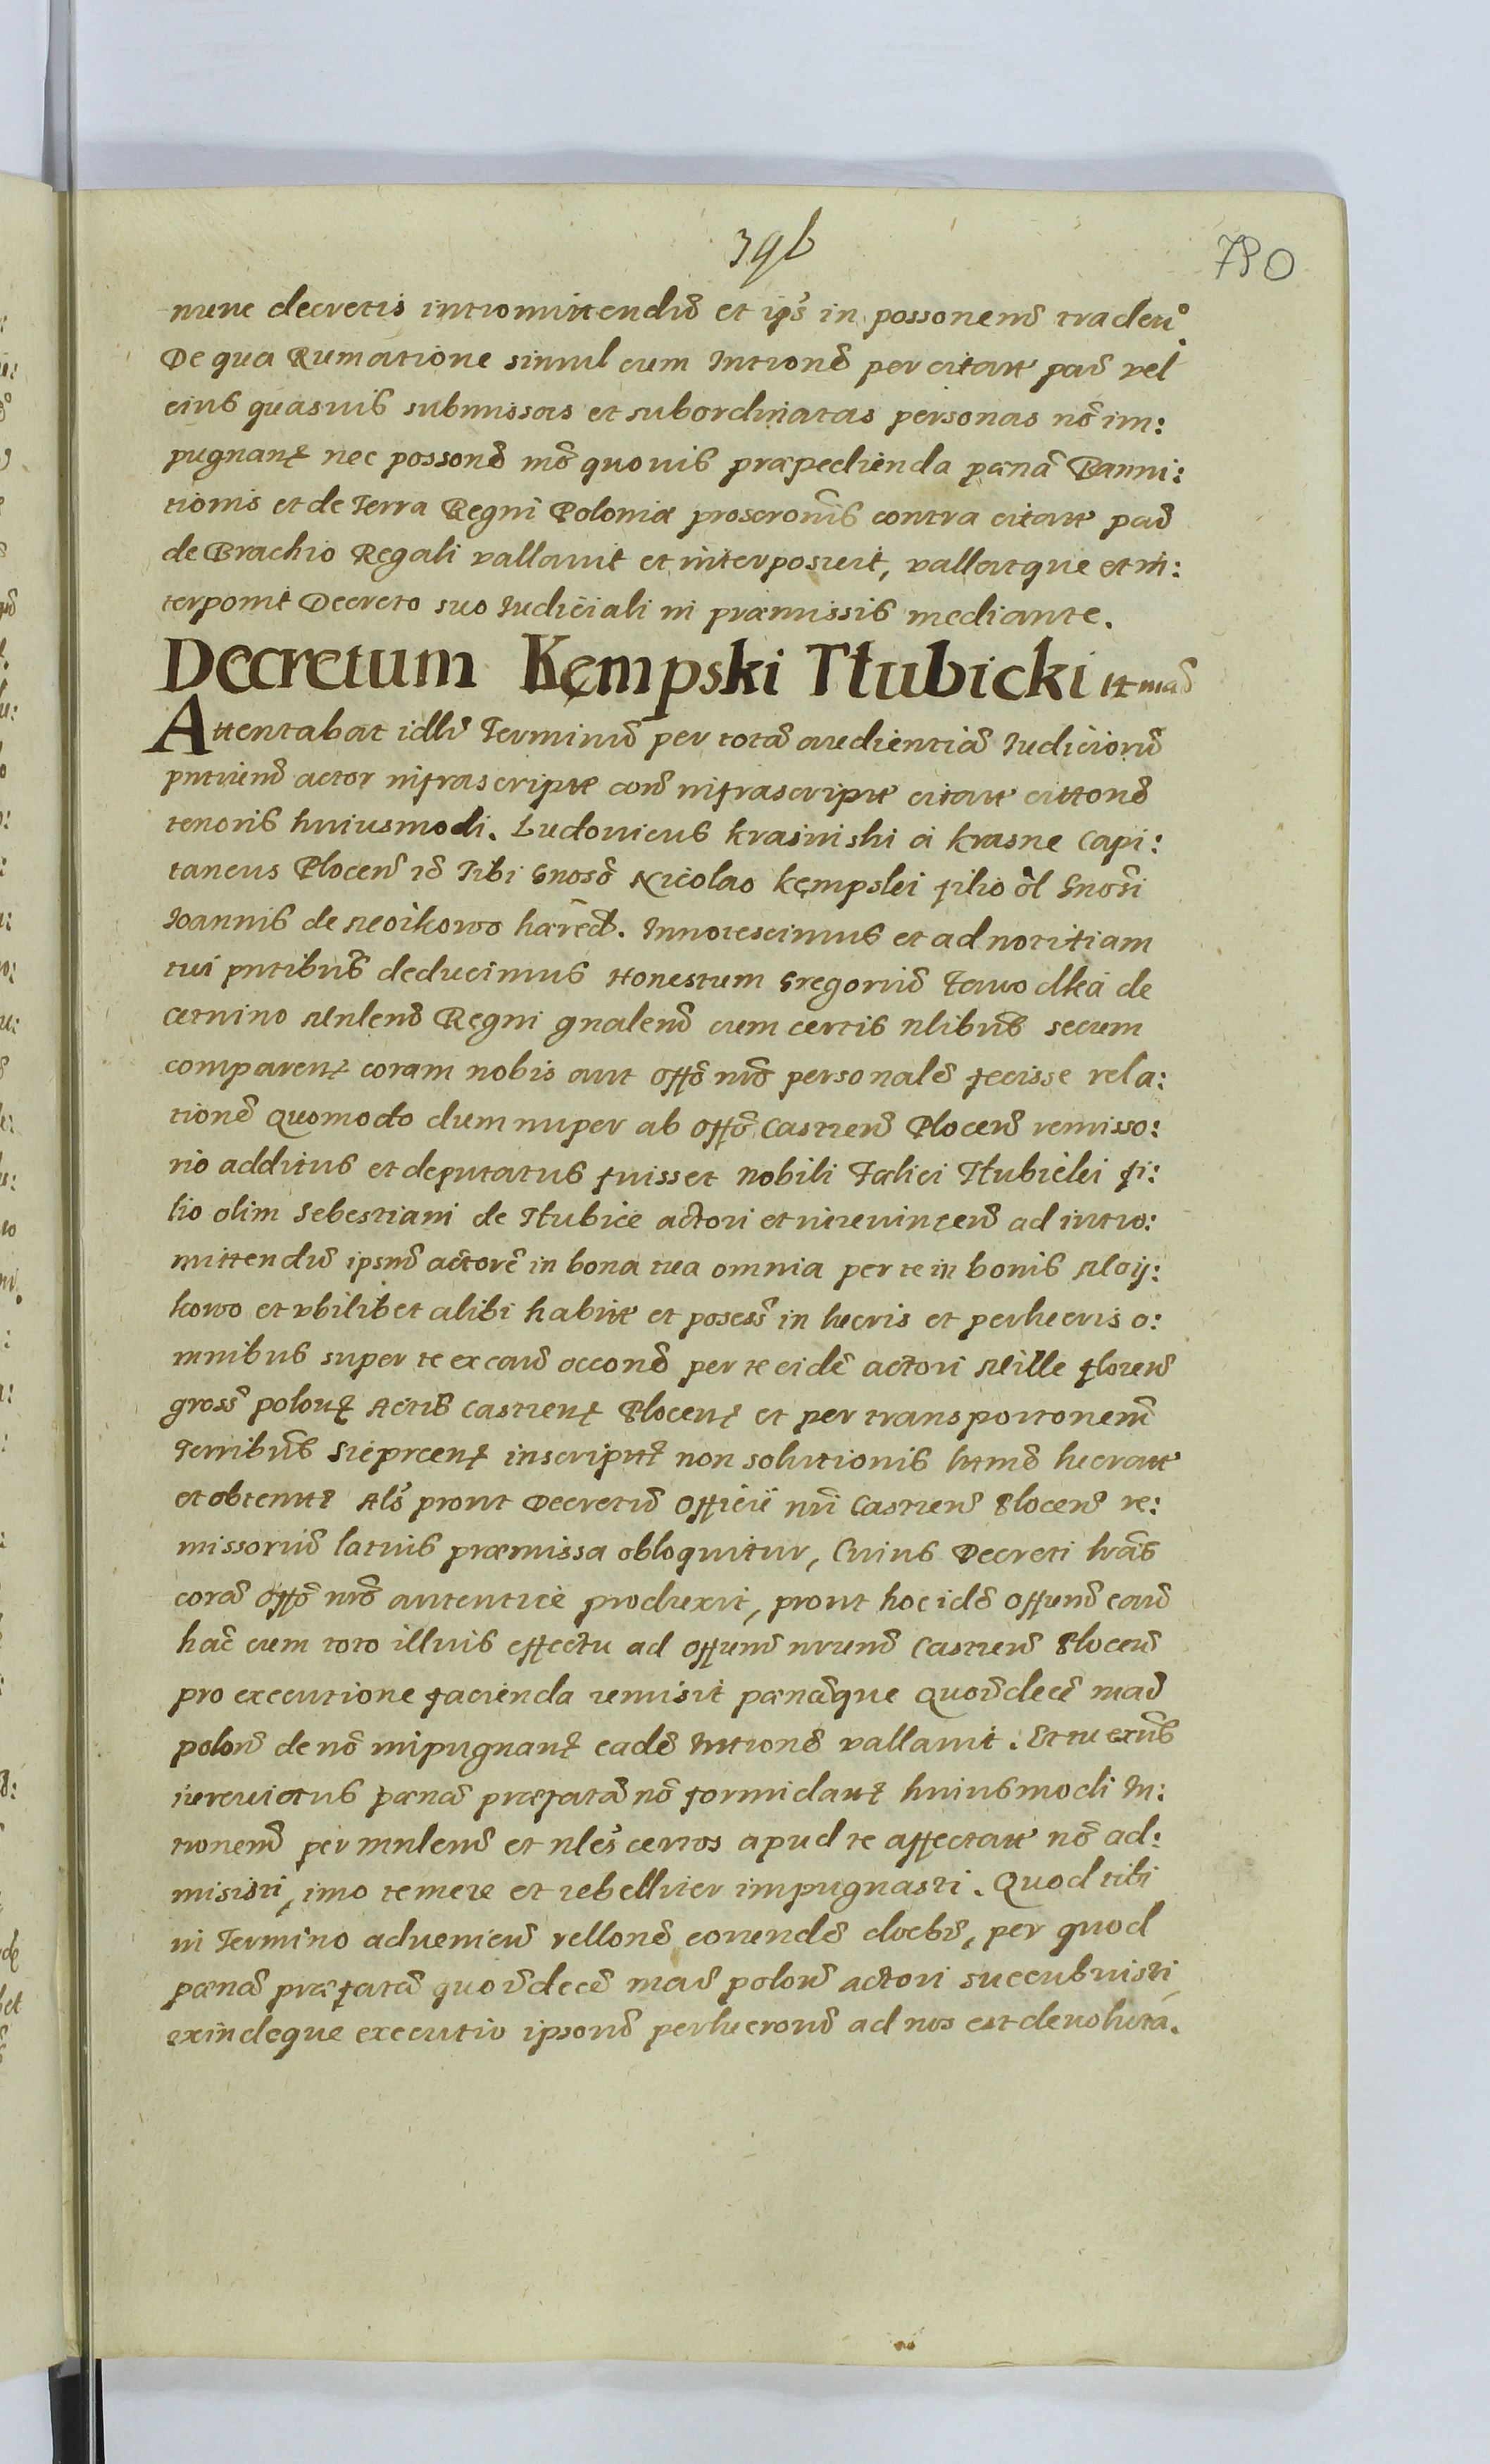 396
750
nunc decretis intromittendũ et ip̃s in possonem̃ tradeñ
De qua Rumatione simul cum Introne᷉ per citatt pað vel
eius quasuis submissas et subordinatas personas nõ im:
pugnant nec possone᷉ mõ quouis præpedienda pænã Banni:
tionis et de Terra Regni Poloniæ proscronis̃ contra citatt pað
de Brachio Regali vallauit et interposuit, vallatque et in:
terponit Decreto suo Iudiciali in præmissis mediante.
Decretum Kęmpski Tłubicki
Attentabat idẽ Terminũ per totã audientiã Iudiciorũ
pntiuũ actor infrascriptt corã infrascriptt citatt cittone᷉
tenoris huiusmodi. Ludouicus krasinski a krasne Capi:
taneus Plocen̄ Tibi Gnosõ Nicolao kęmpski filio ol̃ Gnosi᷉
Ioannis de hæred̃. Innotescimus et ad notitiam
tui pntibus̃ deducimus Honestum Gregoriũ de
Ministlem̃ Regni gnalem̃ cum certis nlibus̃ secum
comparent coram nobis aut offõ nr̃o personalẽ fecisse rela:
tionẽ Quomodo dum nuper ab offõ Castren̄ Plocen̄ remisso:
rio additus et deputatus fuisset Nobili Felici Tłubicki fi:
lio olim Sebestiani de Tłubice actori et iureuincen̄ ad intro:
mittendũ ipsũ actorẽ in bona tua omnia per te in bonis
kowo et vbilibet alibi habitt et posess̃ in lucris et perlucris o:
mnibus super te ex cauð accone᷉ per te eidẽ actori Mille floren̄
gross̃ polont Actis Castrent Plocent et per transportonem̃
Terribus̃ Sieprcent inscriptt non solutionis lucratt
et obtentt Al̃s prout Decretũ Officii nr̃i Castren̄ Plocen̄ re:
missoriũ latius præmissa obloquitur, Cuius Decreti lr̃as
corã offõ nr̃o autentice produxit, prout hoc idẽ offium̃ cauð
hac̃ cum toto illius effectu ad offium̃ nrum̃ Castren̄ Plocen̄
pro executione facienda remisit pænãque Quordecẽ mað
polon̄ de nõ impugnant eadẽ Introne᷉ vallauit. Et tu exũs
iureuictus pænã præfatã nõ formidant huiusmodi In:
tronem̃ per mnlem̃ et nles̃ certos apud te affectatt nõ ad:
misisti, imo temere et rebelliter impugnasti. Quod tibi
in Termino adueniен̄ rellone᷉ eorundẽ docebit̃, per quod
pænã præfatã quordecẽ mað polon̄ actori succubuisti
exindeque executio ipsorũ perlucrorũ ad nos est deuoluta.